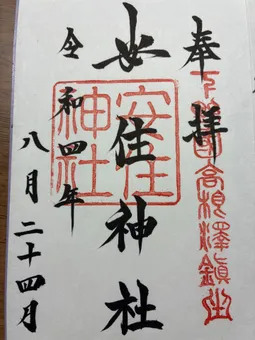 奉拝
下野國高根澤鎮坐
安住神社
安住神社
令和四年
八月二十四日